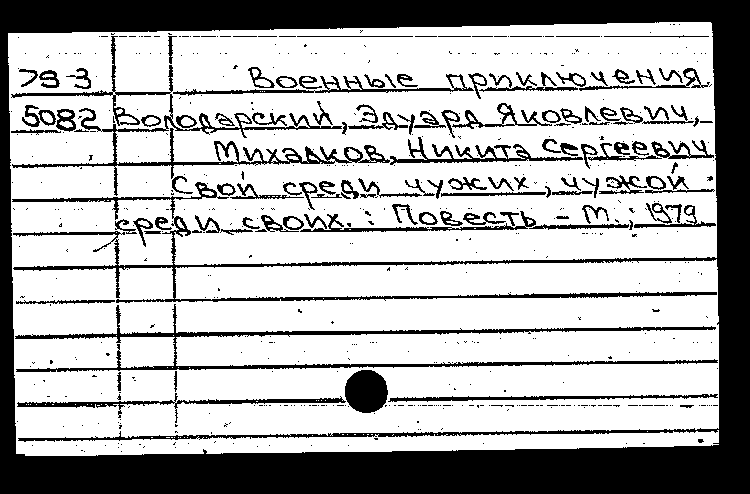 79-3 Военные приключения.
5082 Володарский, Эдуард Яковлевич,
Михалков, Никита Сергеевич
Свой среди чужих, чужой
среди своих. : Повесть - М., 1979